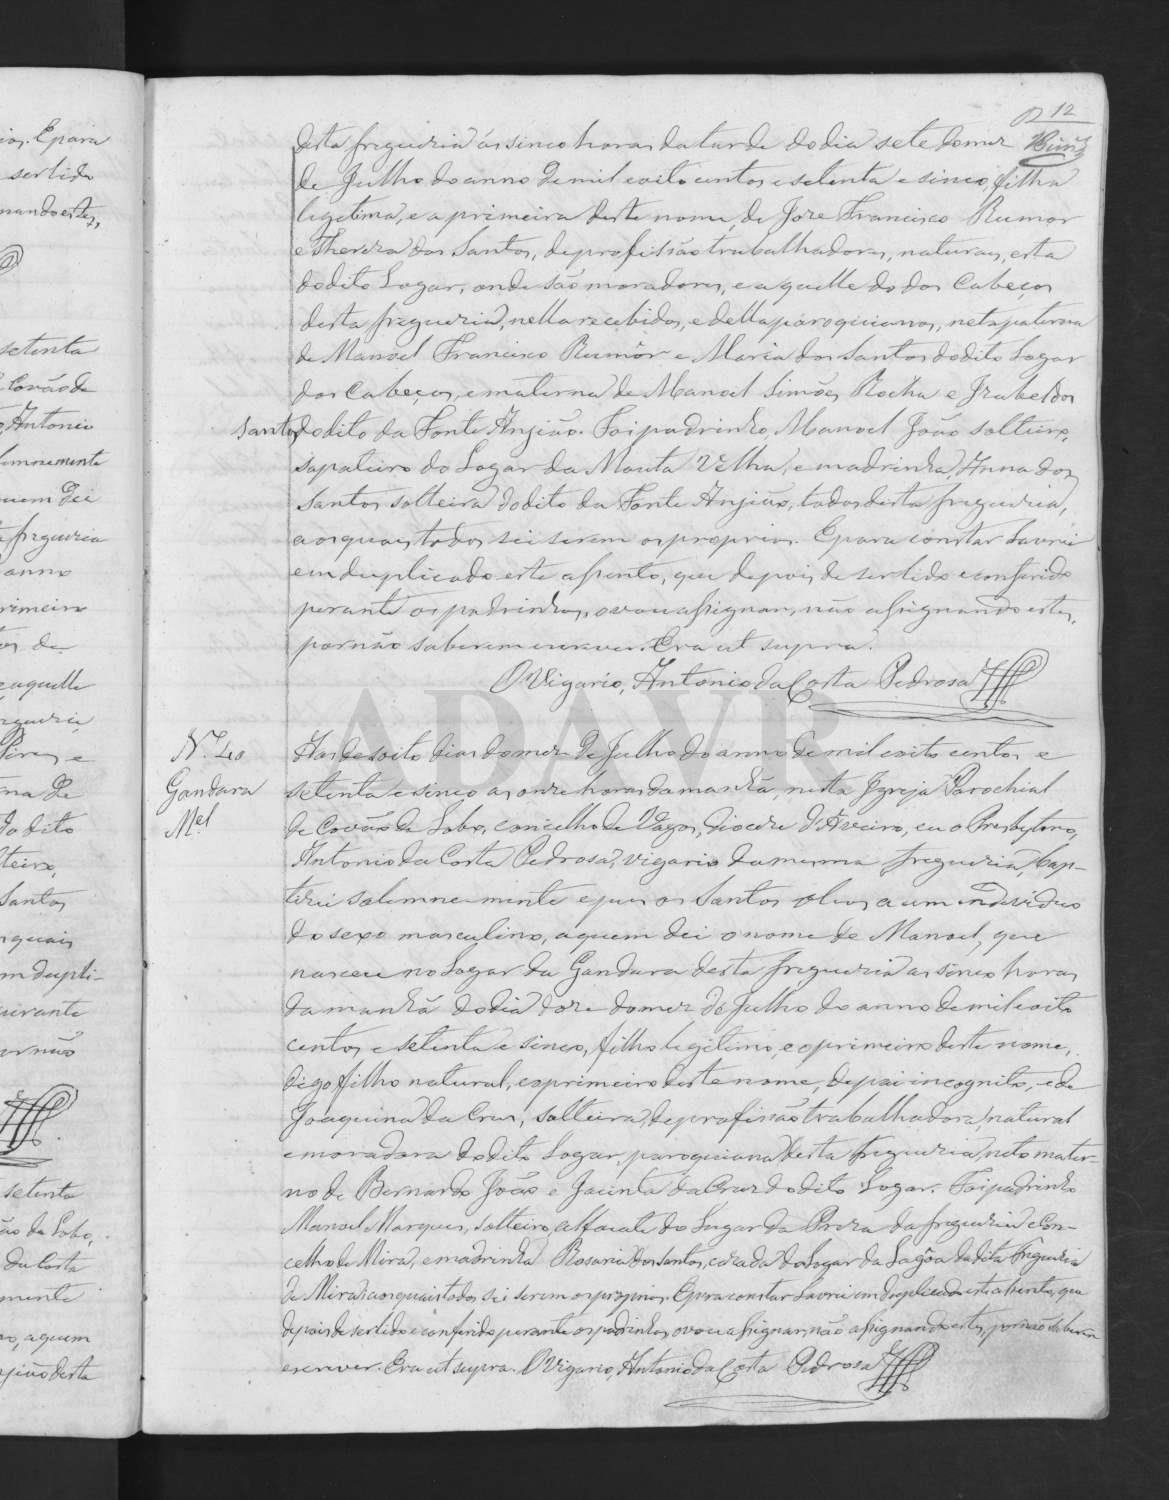 12
desta freguezia ás sinco horas da tarde do dia sete do mez
de Julho do anno de mil e oito centos e setenta e sinco, filha
legetima, e a primeira deste nome, de Joze Francisco Rumor
e Thereza dos Santos, de profissão trabalhadores, naturaes, esta
do dito Logar, onde são moradores, e aquelle do dos Cabeços
desta freguezia, nella recebidos, e della paroquianos, neta paterna
de Manoel Francisco Rumôr e Maria dos Santos do dito Logar
dos Cabeços, e materna de Manoel Simões Rocha e Izabel dos
Santos, do dito da Fonte Anjião. Foi padrinho, Manoel João solteiro,
sapateiro do Logar da Mouta Velha, e madrinha, Anna dos
Santos solteira do dito da Fonte Anjião, todos desta freguezia,
aos quaes todos sei serem os proprios. E para constar lavrei
em duplicado este assento, que depois de ser lido e conferido
perante os padrinhos, o vou assignar, não assignando estes,
por não saberem escrever. Era ut supra.
O Vigario, Antonio da Costa Pedrosa
ADAVR
N.º 40
Gandara
M.el
Aos desoito dias do mez de Julho do anno de mil e oito centos e
setenta e sinco as onze horas da manhã, nesta Igreja Parochial
de Covão do Lobo, concelho de Vagos, diocese d'Aveiro, eu o Presbytero,
Antonio da Costa Pedrosa, vigario da mesma freguezia, bap-
tizei solemnemente e puz os Santos oleos a um individuo
do sexo masculino, a quem dei o nome de Manoel, que
nasceu no Logar da Gandara desta freguezia as sinco horas
da manhã do dia doze do mez de Julho do anno de mil e oito
centos e setenta e sinco, filho legitimo, e o primeiro deste nome,
digo filho natural, e o primeiro deste nome, de pai incognito, e de
Joaquina da Cruz, solteira, de profissão trabalhadora, natural
e moradora do dito Logar, paroquiana desta freguezia, neto mater-
no de Bernardo João e Jacinta da Cruz do dito Logar. Foi padrinho
Manoel Marques, solteiro, alfaiate do Logar da Preza da freguezia e Con-
celho de Mira, e madrinha Rosaria dos Santos, cazada do Logar da Lagôa da dita Freguezia
de Mira, aos quaes todos sei serem os proprios. E para constar lavrei em duplicado este assento, que
depois de ser lido e conferido perante os padrinhos, o vou assignar, não assignando estes, por não saberem
escrever. Era ut supra. O Vigario, Antonio da Costa Pedrosa